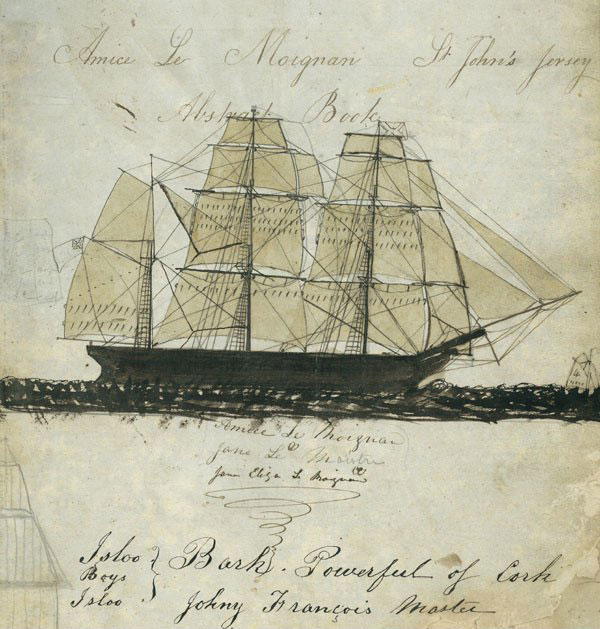 Amice Le Moignan St John's Jersey
Abstract Book
Amice Le Moignan
Jane Le
Jane Eliza Le Moignan
Isloo
Boys
Isloo
Bark. Powerful of Cork
Johny François Master